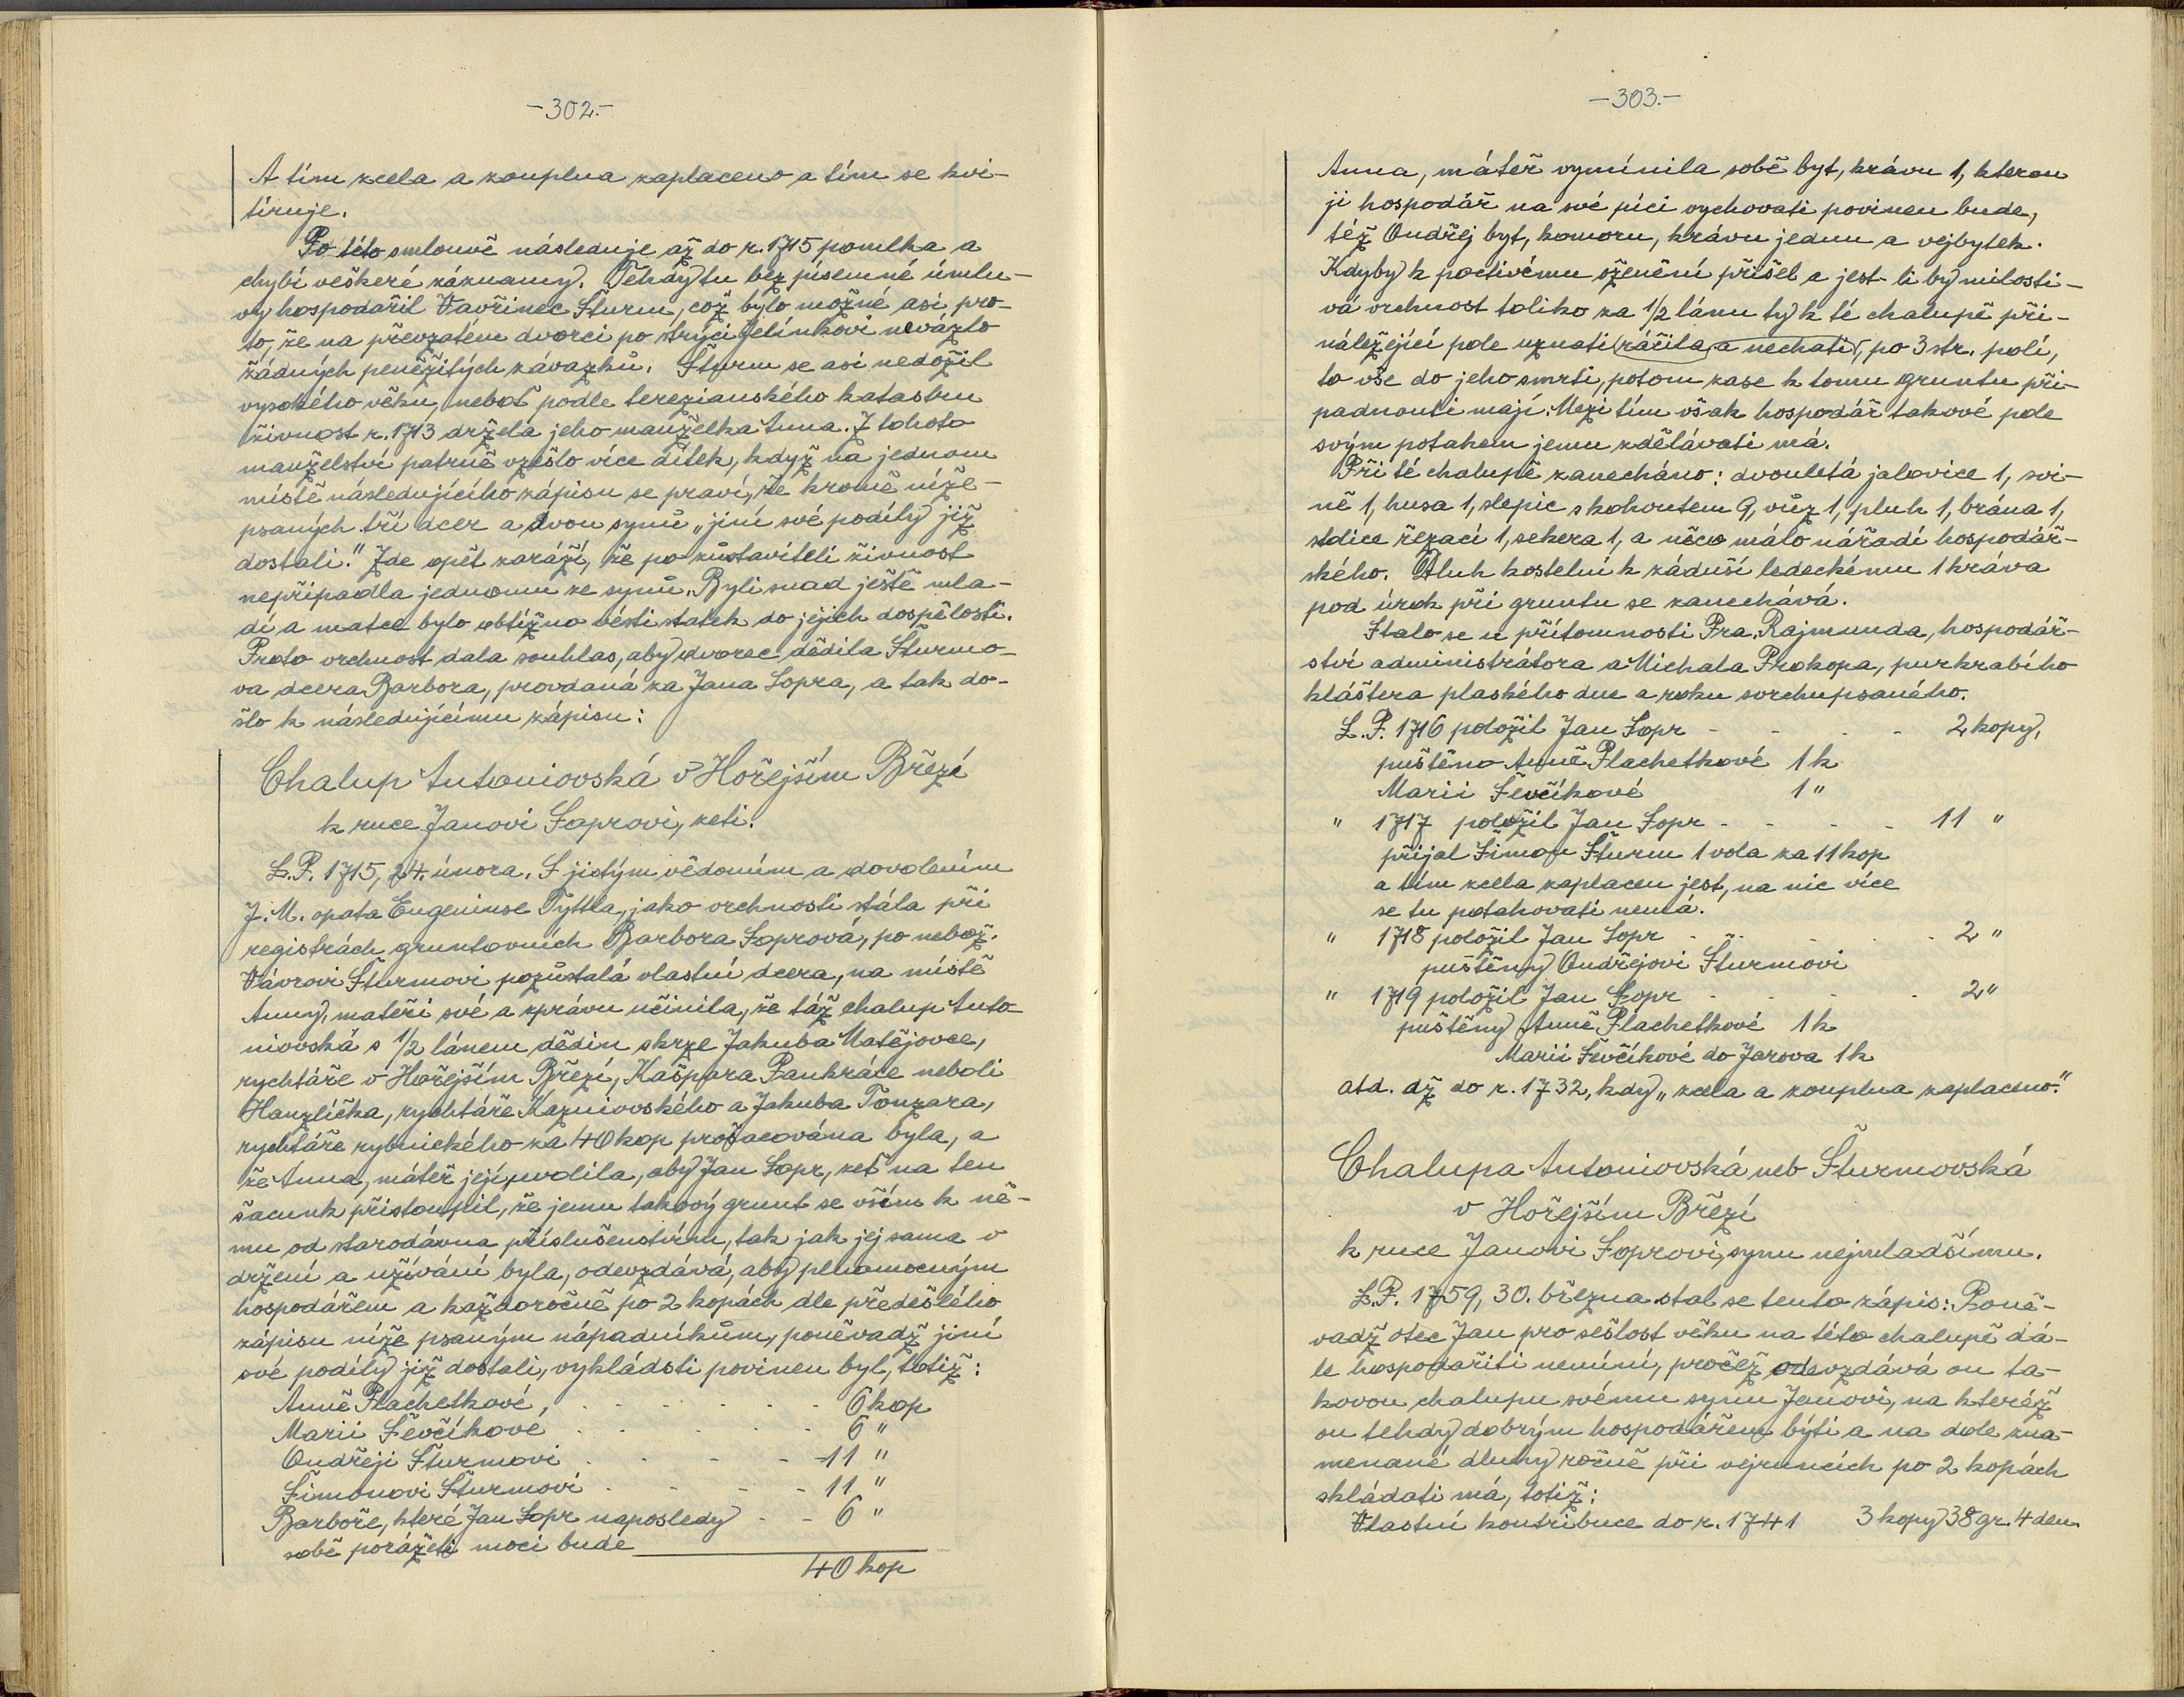 -302.-
A tím zcela a zouplna zaplaceno a tím se kvi-
tíruje.
Po této smlouvě následuje až do r. 1715 pomlka a
chybí veškeré záznamy. Tehdy tu bez písemné úmlu-
vy hospodařil Vavřinec Šturm, což bylo možné asi pro-
to, že na převzatém dvorci po strýci Jelínkovi nevázlo
žádných peněžitých závazků. Šturm se asi nedožil
vysokého věku, neboť podle terezianského katastru
živnost r. 1713 držela jeho manželka Anna. Z tohoto
manželství patrně vzešlo více dítek, když na jednom
místě následujícího zápisu se praví, že kromě níže-
psaných tří dcer a dvou synů „jiní své podíly již
dostali." Zde opět zaráží, že po zůstaviteli živnost
nepřipadla jednomu ze synů. Byli snad ještě mla-
dí a matce bylo obtížno vésti statek do jejich dospělosti.
Proto vrchnost dala souhlas, aby dvorec dědila Šturmo-
va dcera Barbora, provdaná za Jana Sopra, a tak do-
šlo k následujícímu zápisu:
Chalup Antoniovská v Hořejším Březí
k ruce Janovi Soprovi, zeti.
L.P. 1715, 24. února. S jistým vědomím a dovolením
J. M. opata Eugeniuse Tyttla, jako vrchnosti stála při
registrách gruntovních Barbora Soprová, po nebož.
Vávrovi Šturmovi pozůstalá vlastní dcera, na místě
Anny, mateři své a zprávu učinila, že táž chalup Anto-
niovská s 1/2 lánem dědin skrze Jakuba Matějovce,
rychtáře v Hořejším Březí, Kašpara Pankráce neboli
Hanzlíčka, rychtáře Kaznivovského a Jakuba Tonzara,
rychtáře rybnického za 40 kop prošacována byla, a
že Anna, máteř její, svolila, aby Jan Sopr, zeť na ten
šacunk přistoupil, že jemu takový grunt se vším k ně-
mu od starodávna příslušenstvím, tak jak jej sama v
držení a užívání byla, odevzdává, aby plnomocným
hospodářem a každoročně po 2 kopách dle předešlého
zápisu níže psaným nápadníkům, poněvadž jiní
své podíly již dostali, vykládati povinen byl, totiž:
Anně Plachetkové, . . . . . . 6 kop
Marii Ševčíkové . . . . . 6 "
Ondřeji Šturmovi . . . . - 11 "
Šimonovi Šturmovi . . . . 11 "
Barboře, které Jan Sopr naposledy - - 6 "
sobě porážeti moci bude
40 kop
-303.-
Anna, máteř vymínila sobě byt, krávu 1, kterou
ji hospodář na své píci vychovati povinen bude,
též Ondřej byt, komoru, krávu jednu a vejbytek.
Kdyby k poctivému oženění přišel a jest-li by milosti-
vá vrchnost toliko za 1/2 lánu ty k té chalupě při-
náležející pole uznati ráčila a nechati, po 3 str. polí,
to vše do jeho smrti, potom zase k tomu gruntu při-
padnouti mají. Mezi tím však hospodář takové pole
svým potahem jemu zdělávati má.
Při té chalupě zanecháno: dvouletá jalovice 1, svi-
ně 1, husa 1, slepic s kohoutem 9, vůz 1, pluh 1, brána 1,
stolice řezací 1, sekera 1, a něco málo nářadí hospodář-
ského. Dluh kostelní k záduší ledeckému 1 kráva
pod úrok při gruntu se zanechává.
Stalo se u přítomnosti Fra. Rajmunda, hospodář-
ství administrátora a Michala Prokopa, purkrabího
kláštera plaského dne a roku svrchupsaného.
L.P. 1716 položil Jan Sopr - - - - 2 kopy,
puštěno Anně Plachetkové 1 k
Marii Ševčíkové 1 "
" 1717 položil Jan Sopr - - - - 11 "
přijal Šimon Šturm 1 vola za 11 kop
a tím zcela zaplacen jest, na nic více
se tu potahovati nemá.
" 1718 položil Jan Sopr . . . . 2 "
puštěny Ondřejovi Šturmovi
" 1719 položil Jan Sopr . . . . 2 "
puštěny Anně Plachetkové 1 k
Marii Ševčíkové do Jarova 1 k
atd. až do r. 1732, kdy „zcela a zouplna zaplaceno."
Chalupa Antoniovská neb Šturmovská
v Hořejším Březí
k ruce Janovi Soprovi, synu nejmladšímu.
L.P. 1759, 30. března stal se tento zápis: Poně-
vadž otec Jan pro sešlost věku na této chalupě dá-
le hospodařiti nemíní, pročež odevzdává on ta-
kovou chalupu svému synu Janovi, na kteréž
on tehdy dobrým hospodářem býti a na dole zna-
menané dluhy ročně při vejruncích po 2 kopách
skládati má, totiž:
Vlastní kontribuce do r. 1741 3 kopy 38 gr. 4 den.